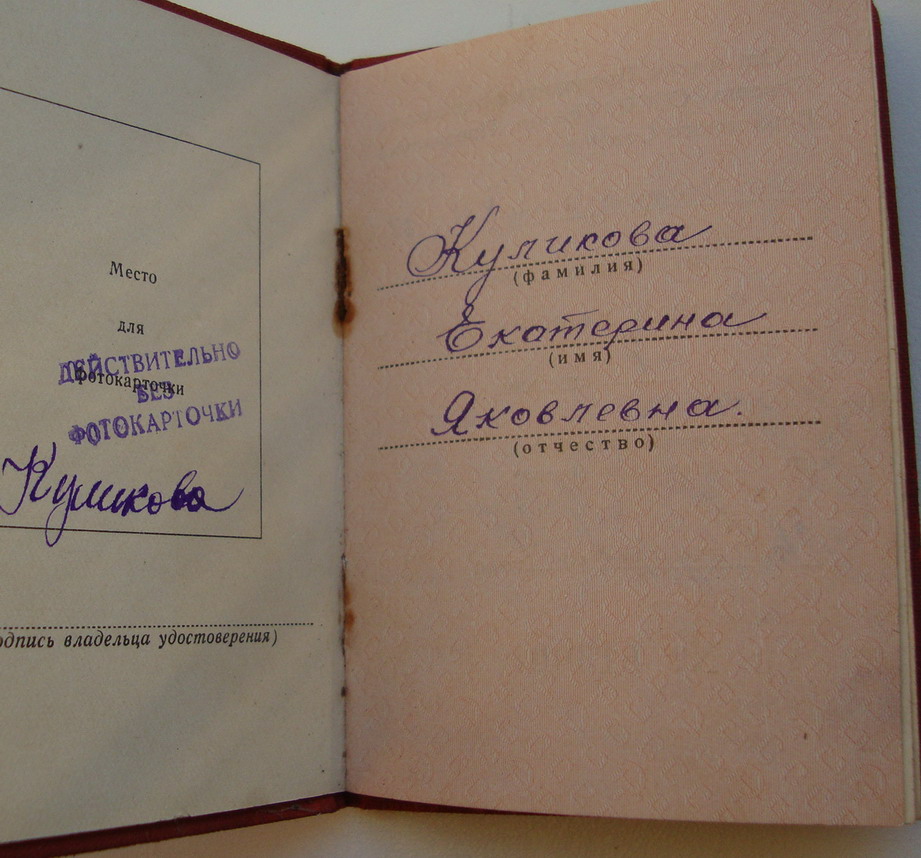 Место
для
фотокарточки
ДЕЙСТВИТЕЛЬНО
БЕЗ
ФОТОКАРТОЧКИ
Куликова
одпись владельца удостоверения)
Куликова
(фамилия)
Екатерина
(имя)
Яковлевна.
(отчество)